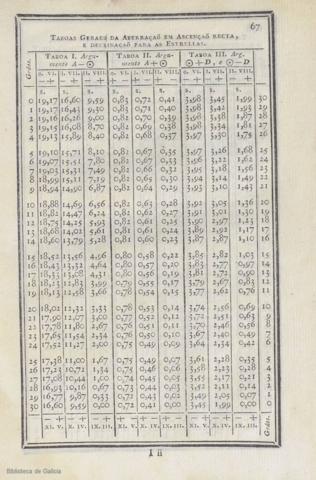 67
TABOAS GERAES DA ABERRAÇAÕ EM ASCENÇAÕ RECTA,
E DECLINAÇAÕ PARA AS ESTRELLAS.
TABOA I. Argumento A−☉ TABOA II. Argumento A+☉ TABOA III. Arg. ☉+D, e ☉−D
Gráos.
0 19,17 16,60 9,59 0,83 0,72 0,41 3,98 3,45 1,99 30
1 19,17 16,43 9,30 0,83 0,71 0,40 3,98 3,42 1,93 29
2 19,16 16,26 9,00 0,82 0,70 0,39 3,98 3,38 1,87 28
3 19,15 16,08 8,70 0,82 0,69 0,38 3,98 3,34 1,81 27
4 19,13 15,89 8,40 0,82 0,68 0,37 3,97 3,30 1,75 26
5 19,10 15,71 8,10 0,82 0,67 0,35 3,97 3,26 1,68 25
6 19,07 15,51 7,80 0,82 0,67 0,33 3,96 3,22 1,62 24
7 19,03 15,31 7,49 0,82 0,66 0,32 3,95 3,18 1,56 23
8 18,99 15,11 7,19 0,82 0,65 0,30 3,94 3,14 1,49 22
9 18,94 14,90 6,87 0,82 0,64 0,29 3,93 3,10 1,43 21
10 18,88 14,69 6,56 0,82 0,63 0,28 3,92 3,05 1,36 20
11 18,82 14,47 6,24 0,82 0,62 0,27 3,91 3,01 1,30 19
12 18,75 14,25 5,93 0,82 0,61 0,25 3,90 2,97 1,23 18
13 18,68 14,02 5,61 0,81 0,61 0,24 3,89 2,92 1,17 17
14 18,60 13,79 5,28 0,81 0,60 0,23 3,87 2,87 1,10 16
15 18,52 13,56 4,96 0,80 0,58 0,22 3,85 2,82 1,03 15
16 18,43 13,32 4,64 0,80 0,57 0,20 3,83 2,77 0,97 14
17 18,33 13,08 4,31 0,80 0,56 0,19 3,81 2,72 0,90 13
18 18,23 12,83 3,99 0,79 0,55 0,17 3,79 2,67 0,83 12
19 18,13 12,58 3,66 0,78 0,54 0,15 3,77 2,62 0,76 11
20 18,02 12,32 3,33 0,78 0,53 0,14 3,74 2,56 0,69 10
21 17,90 12,07 3,00 0,77 0,52 0,12 3,72 2,51 0,63 9
22 17,78 11,80 2,67 0,76 0,51 0,11 3,70 2,46 0,56 8
23 17,65 11,54 2,34 0,76 0,50 0,10 3,67 2,40 0,49 7
24 17,52 11,27 2,00 0,75 0,49 0,09 3,64 2,34 0,42 6
25 17,38 11,00 1,67 0,75 0,49 0,07 3,61 2,28 0,35 5
26 17,23 10,72 1,34 0,75 0,46 0,06 3,58 2,23 0,28 4
27 17,08 10,44 1,00 0,74 0,45 0,05 3,55 2,17 0,21 3
28 16,93 10,16 0,67 0,73 0,44 0,03 3,52 2,11 0,14 2
29 16,77 9,87 0,33 0,72 0,43 0,02 3,49 2,05 0,07 1
30 16,60 9,59 0,00 0,72 0,41 0,00 3,45 1,99 0,00 0
XI. V. X. IV. IX. III. XI. V. X. IV. IX. III. XI. V. X. IV. IX. III.
Gráos.
I ii
Biblioteca de Galicia